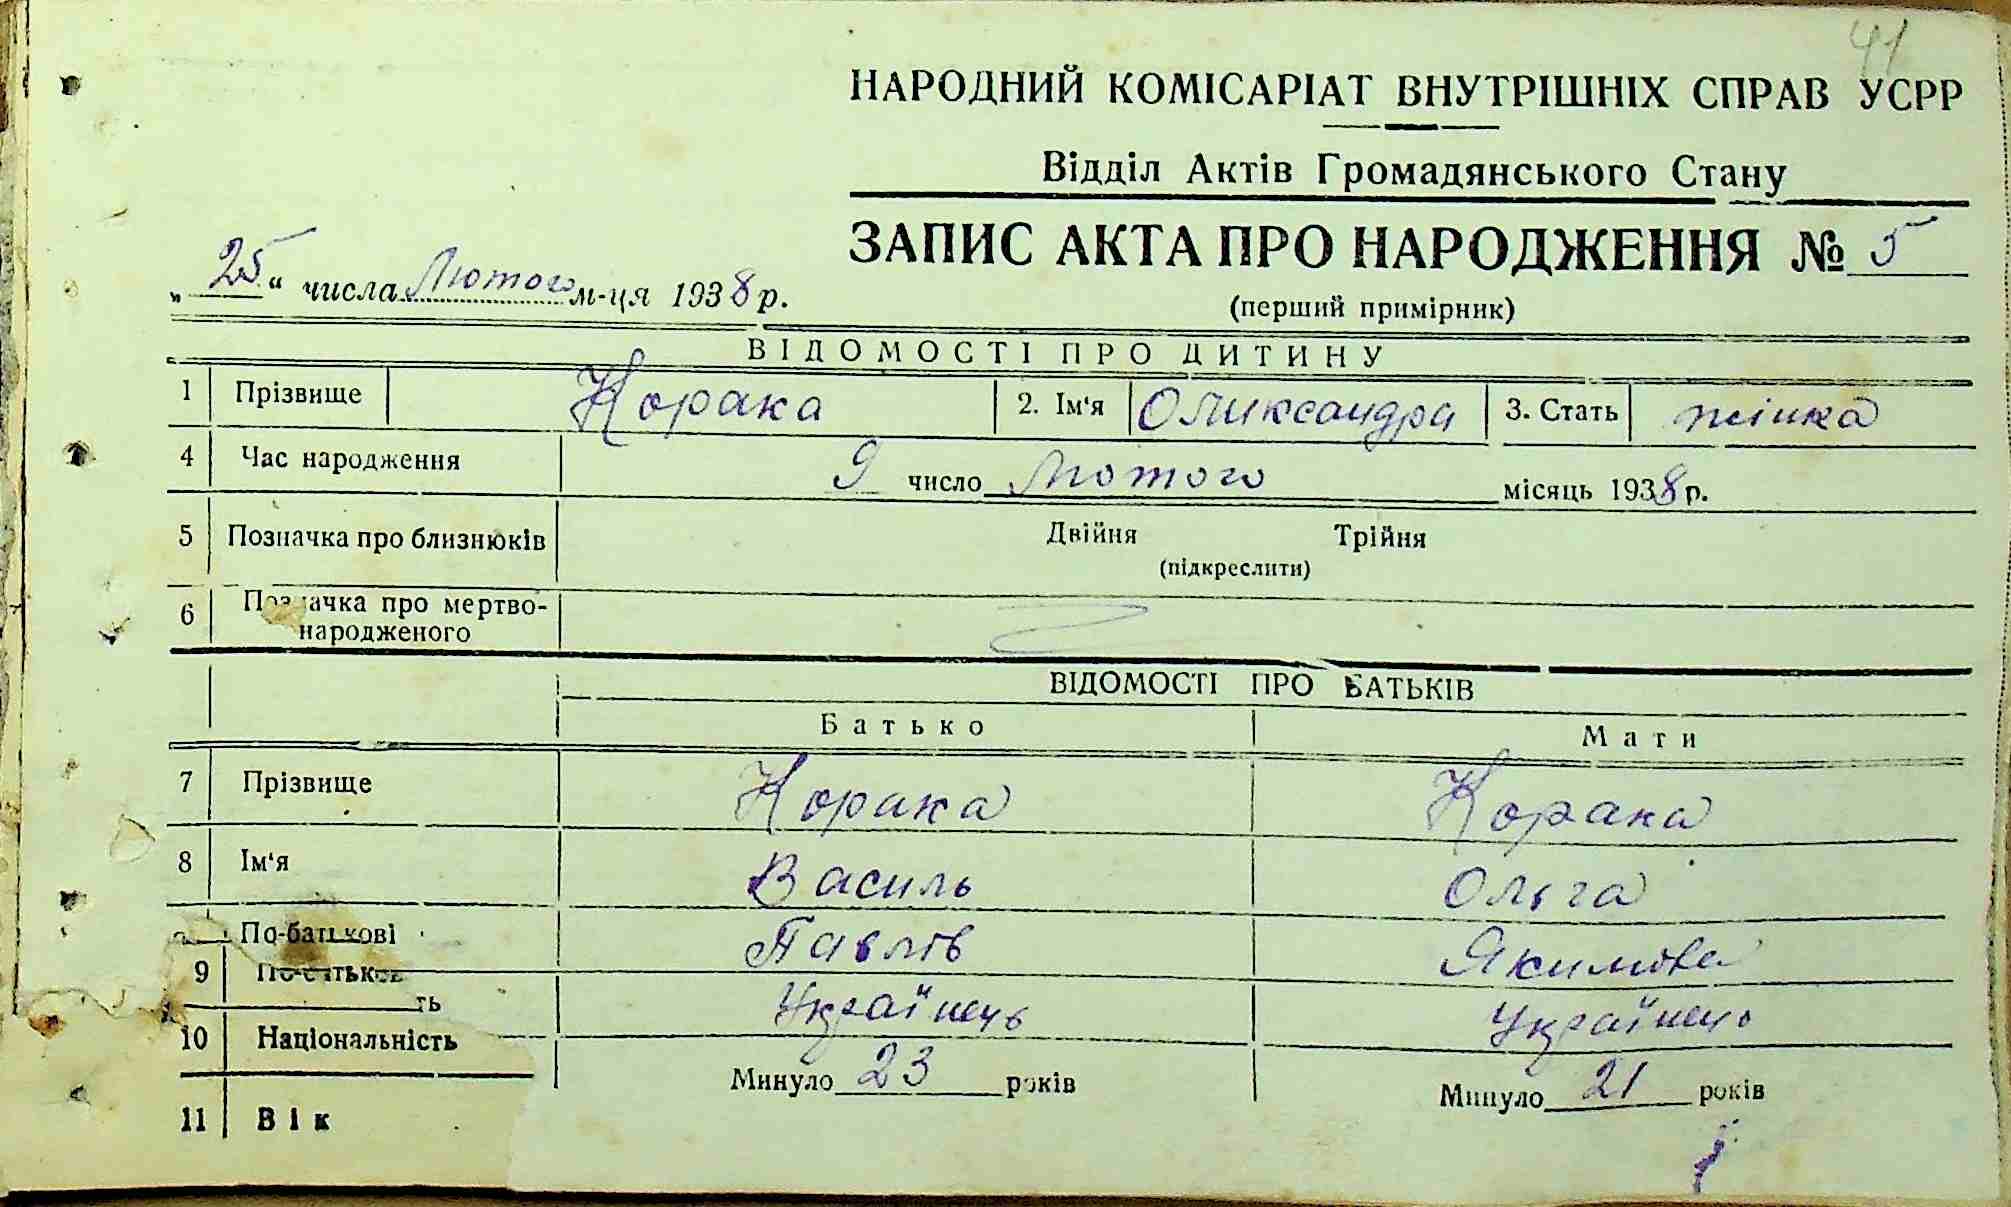 41
НАРОДНИЙ КОМІСАРІАТ ВНУТРІШНІХ СПРАВ УСРР
Відділ Актів Громадянського Стану
ЗАПИС АКТА ПРО НАРОДЖЕННЯ № 5
„25“ числа Лютого м-ця 1938 р.
(перший примірник)
ВІДОМОСТІ ПРО ДИТИНУ
1 Прізвище Корака 2. Ім'я Оликсандра 3. Стать жінка
4 Час народження 9 число Лютого місяць 1938 р.
5 Позначка про близнюків Двійня Трійня
(підкреслити)
6 Позначка про мертво-
народженого
ВІДОМОСТІ ПРО БАТЬКІВ
Батько Мати
7 Прізвище Корака Корака
8 Ім'я Василь Ольга
По-батькові Павлів Якимова
9
ть Українець Українець
10 Національність
Минуло 23 років Минуло 21 років
11 Вік